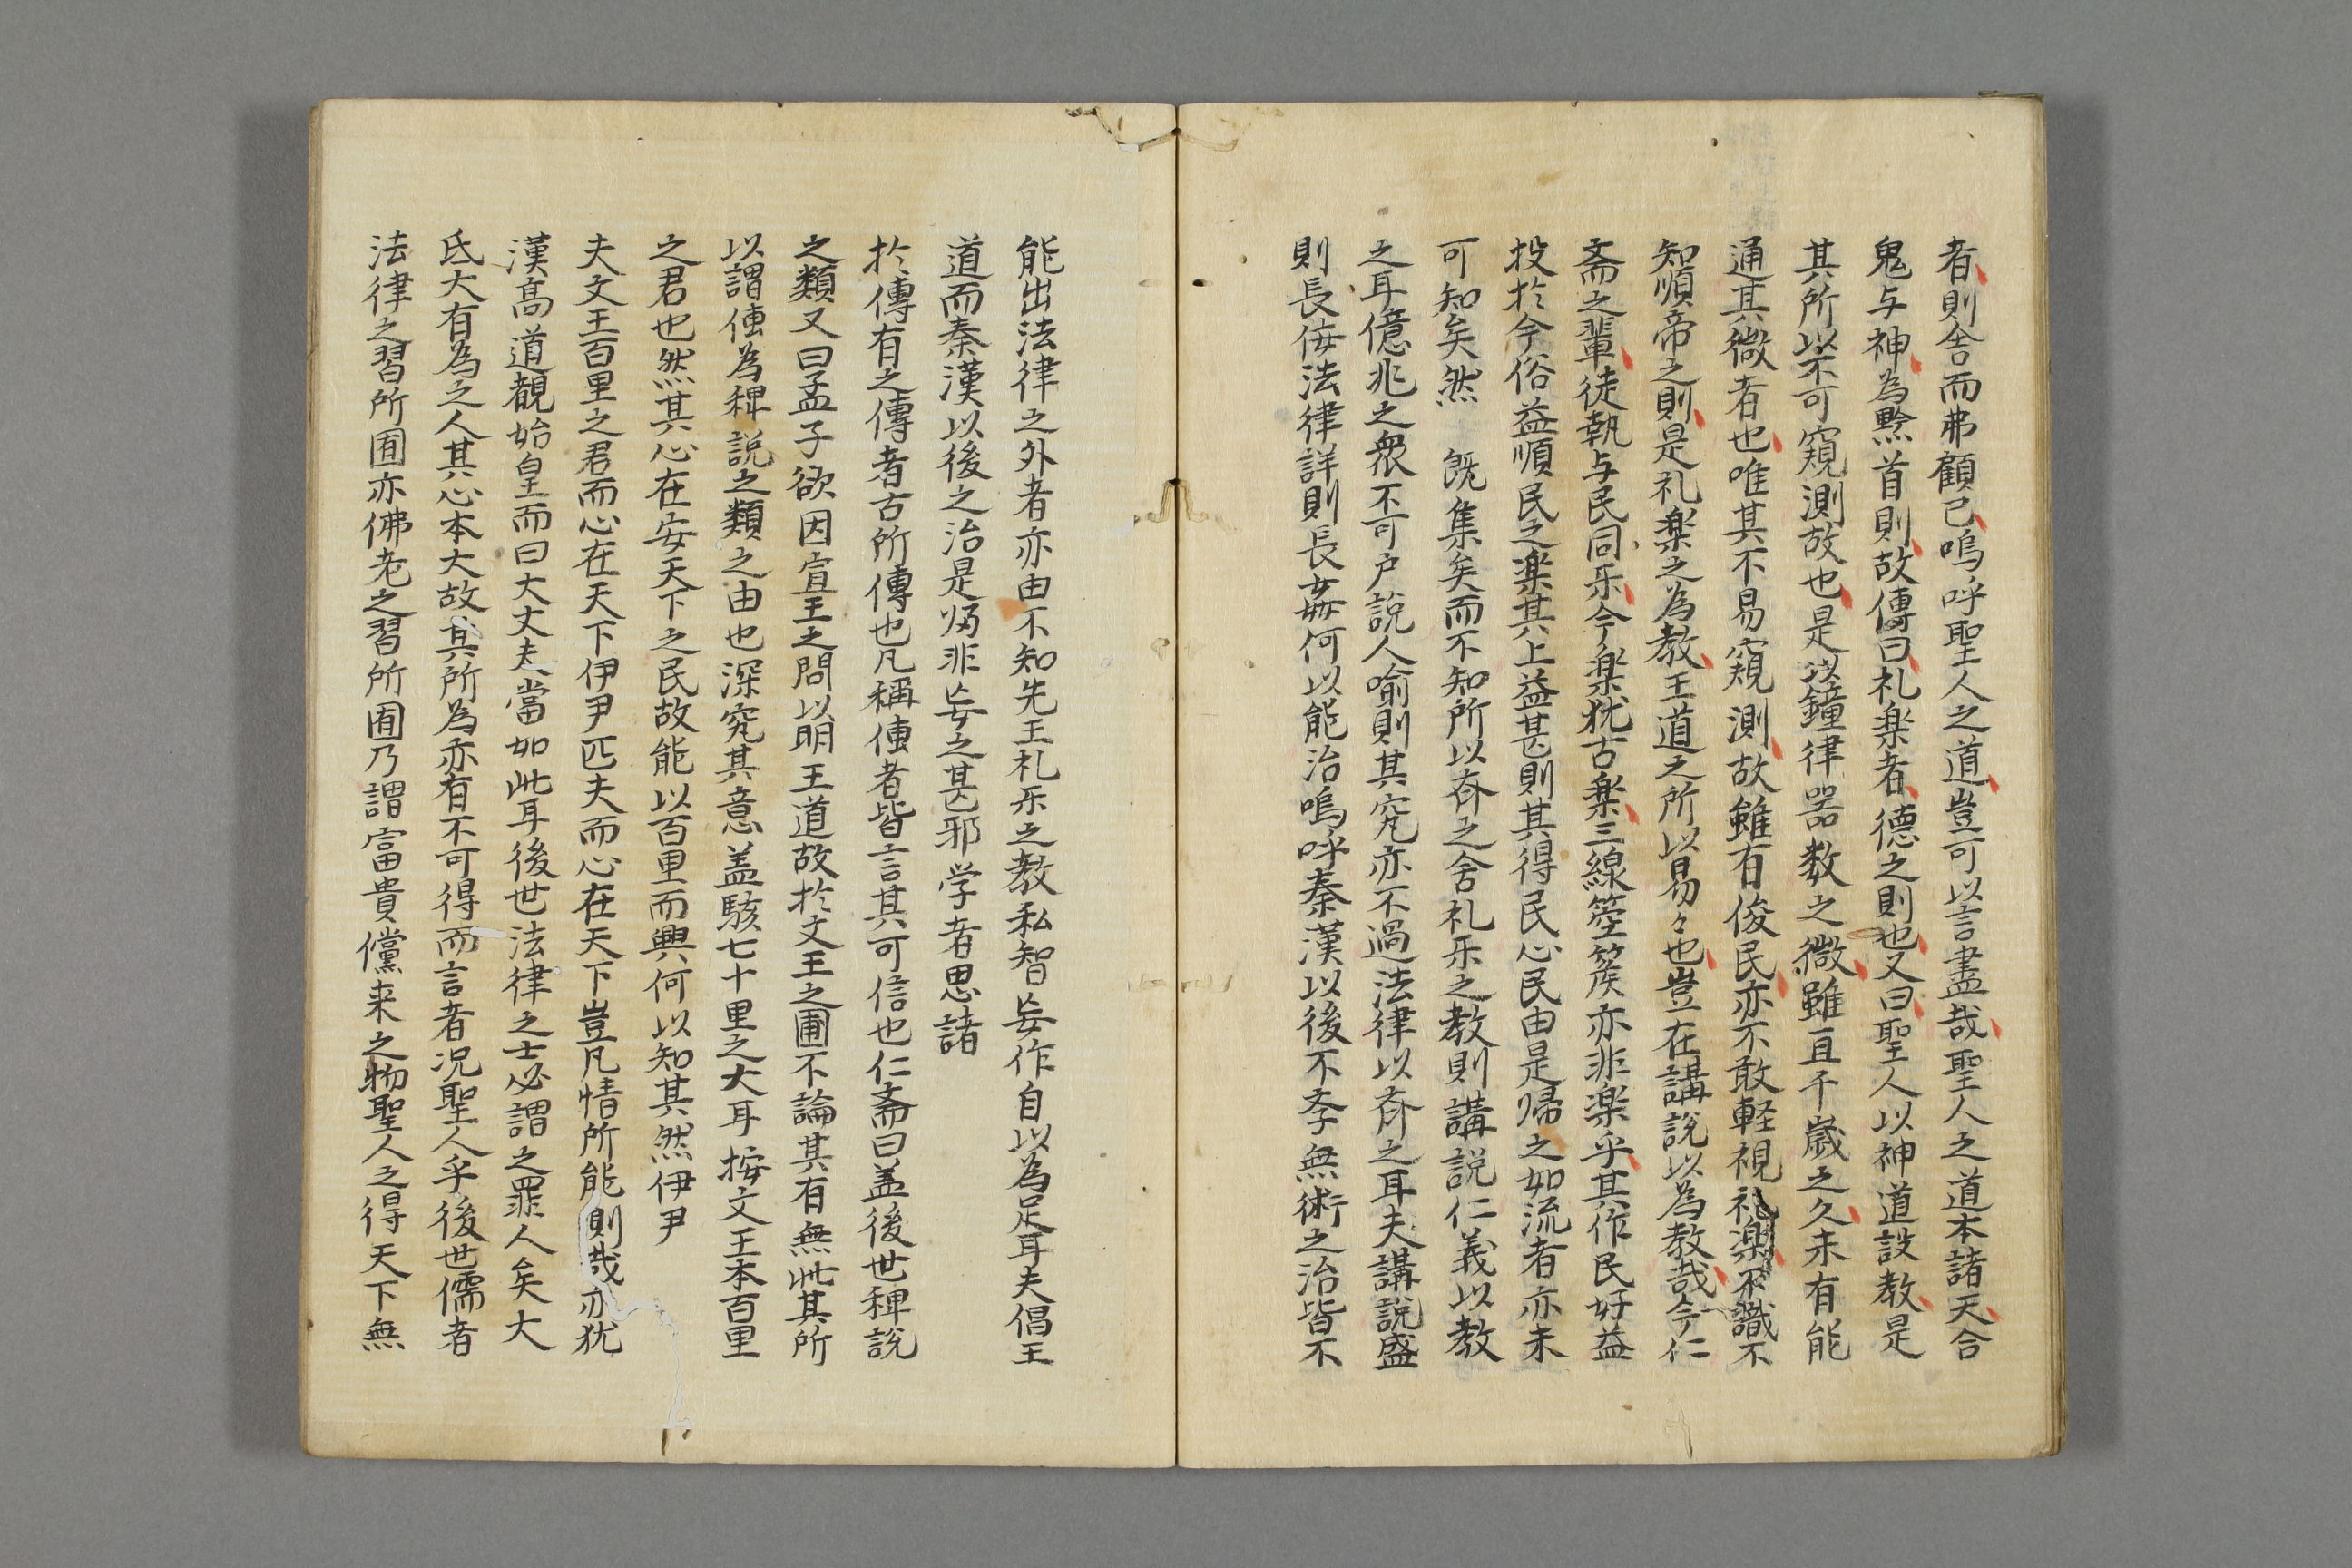 者則舎而弗顧已嗚呼聖人之道豈可以言盡哉聖人之道本諸天合
鬼与神為黔首則故傳曰礼楽者德之則也又曰聖人以神道設教是
其所以不可窺測故也是以鐘律器数之微雖亘千歲之久未有能
通其微者也唯其不易窺測故雖有俊民亦不敢軽視礼楽不識不
知順帝之則是礼楽之為教王道之所以易々也豈在講說以為教哉今仁
斎之輩徒執与民同乐今楽犹古楽三線箜篌亦非楽乎其作民好益
投於今俗益順民之楽其上益甚則其得民心民由是帰之如流者亦未
可知矣然 既集矣而不知所以斉之舎礼乐之教則講説仁義以教
之耳億兆之衆不可户說人喻則其究亦不過法律以斉之耳夫講說盛
則長侮法律詳則長姦何以能治嗚呼秦漢以後不李無術之治皆不
能出法律之外者亦由不知先王礼乐之教私智妄作自以為足耳夫倡王
道而秦漢以後之治是㷌非妄之甚邪学者思諸
於傳有之傳者古所傳也凡稱傳者皆言其可信也仁斎曰盖後世稗說
之類又曰孟子欲因宣王之問以明王道故於文王之囿不論其有無此其所
以謂傳為稗說之類之由也深究其意盖駭七十里之大耳按文王本百里
之君也然其心在安天下之民故能以百里而興何以知其然伊尹
夫文王百里之君而心在天下伊尹匹夫而心在天下豈凡情所能則哉亦犹
漢高道観始皇而曰大丈夫當如此耳後世法律之士必謂之罪人矣大
氐大有為之人其心本大故其所為亦有不可得而言者况聖人乎後世儒者
法律之習所囿亦佛老之習所囿乃謂富貴儻来之物聖人之得天下無